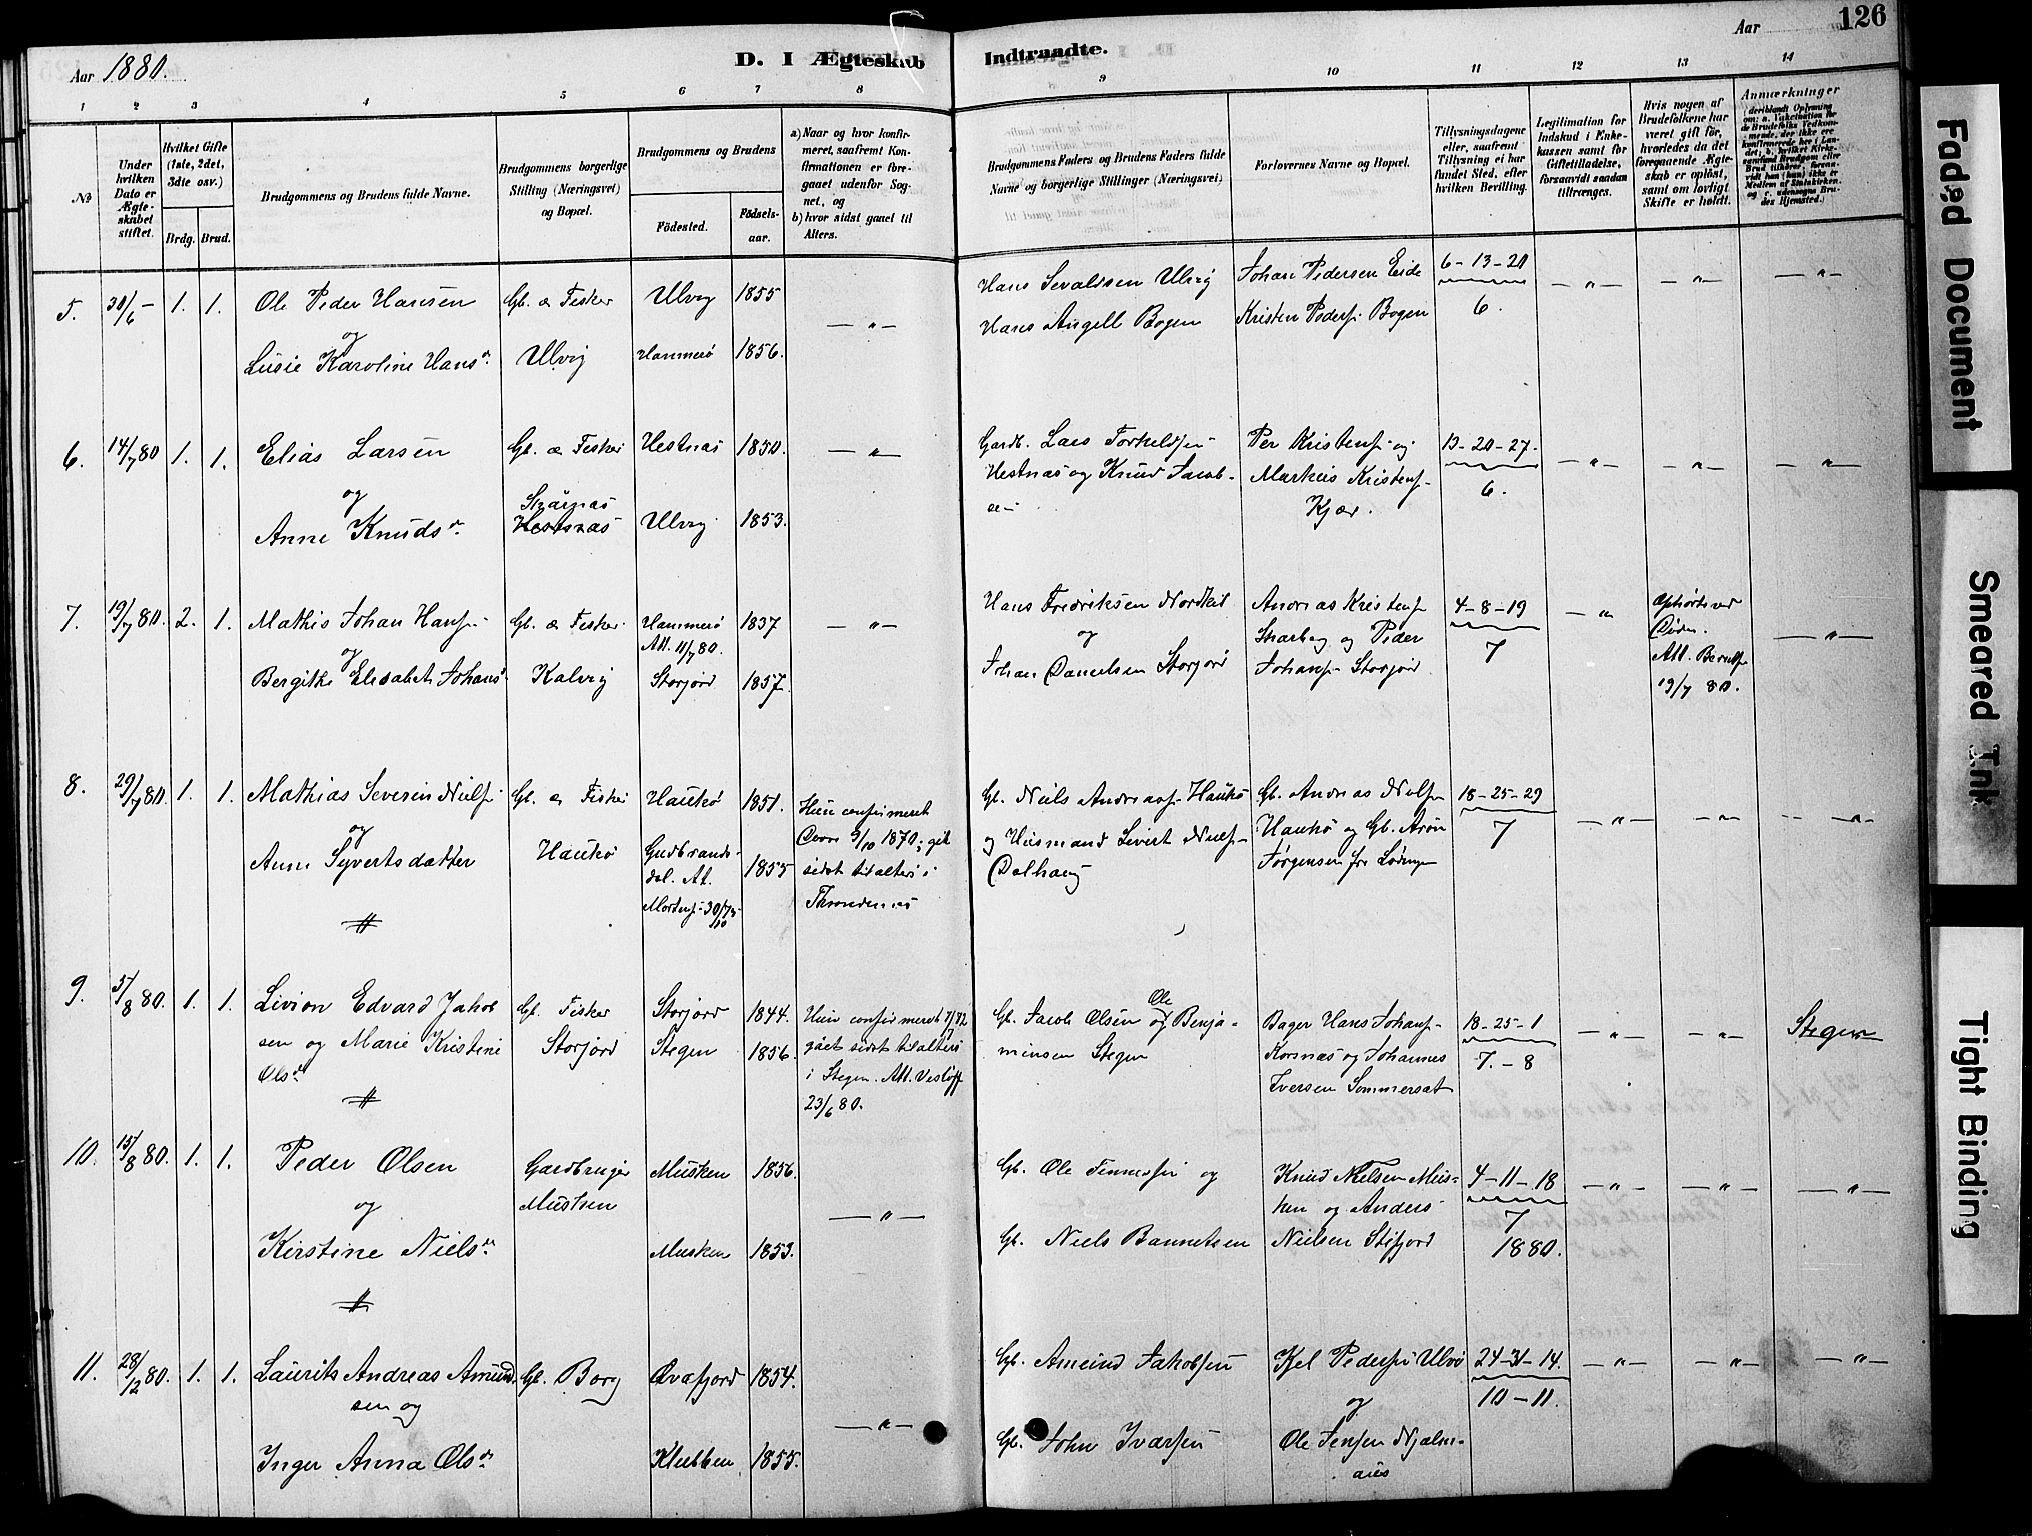 126
Aar 1880.
D. I Ægteskab
Indtraadte.
Aar
1 2 3 4 5 6 7 8 9 10 11 12 13 14
№
Under hvilken Dato er Ægteskabet stiftet.
Hvilket Gifte (1ste, 2det, 3die osv.)
Brdg. Brud.
Brudgommens og Brudens fulde Navne.
Brudgommens borgerlige Stilling (Næringsvei) og Bopæl.
Brudgommens og Brudens
Fødested.
Fødselsaar.
a) Naar og hvor konfirmeret, saafremt Konfirmationen er foregaaet udenfor Sognet, og
b) hvor sidst gaaet til Alters.
Brudgommens Faders og Brudens Faders fulde Navne og borgerlige Stillinger (Næringsvei)
Forlovernes Navne og Bopæl.
Tillysningsdagene eller, saafremt Tillysning ei har fundet Sted, efter hvilken Bevilling.
Legitimation for Indskud i Enkekassen samt for Giftetilladelse, forsaavidt saadan tiltrænges.
Hvis nogen af Brudefolkene har været gift før, hvorledes da det foregaaende Ægteskab er opløst, samt om lovligt Skifte er holdt.
Anmærkninger
5. 30/6 — 1. 1. Ole Peder Hansen Gb. & Fisker Ulvig 1855 — " —
Hans Sevaldsen Ulvig Johan Pedersen Eide 6-13-20 — " — — " — — " —
og
Lusie Karoline Hansd. Ulvig Hammerø 1856.
Hans Angell Bogen Kristen Peders. Bogen 6.
6. 14/7 80 1. 1. Elias Larsen Gb. & Fisker Hestnæs 1850. — " —
Gardb. Lars Torkeldsen Per Kristens. og 13-20-27. — " — — " — — " —
og Skarnæs
Hestnæs og Knud Jacobsen Markus Kristens. 6.
Anne Knudsd. Hestnæs Ulvig 1853.
Kjær.
7. 19/7 80. 2. 1. Mathis Johan Hans. Gb. & Fisker. Hammerø 1837 — " —
Att. 11/7 80.
Hans Fredriksen Nordkil Andreas Kristens. 4-8-19 — " Ophørt ved
og Skarberg og Peder 7 Døden. — " —
og
Bergitte Elisabet Johansd. Kalvig Storjord 1857.
Johan Danielsen Storjord Johans. Storjord Att.
19/7 80.
8. 29/7 80. 1. 1. Mathias Severin Niels. Gb. & Fisker Haukø 1851. Hun confirmeret
9/10 1870; gik
Gb. Niels Andreas. Haukø Gb. Andreas Niels. 18-25-29
og Husmand Sivert Niels. Haukø og Gb. Aron 7 — " — — " — — " —
Jørgensen fra Lødingen
og
Anne Syvertsdatter Haukø Gudbrandsdal. At. 1855 sidst til alters i
Thronednes
9. 5/8 80. 1. 1. Livion Edvard Jakobsen og Marie Kristine Olsd.
Gb. Fisker Storjord 1844. Hun confirmeret
Storjord Stegen 1856. gået sidst til alters
i Stegen. Att.
23/6 80.
Gb. Jacob Olsen og Ole Benjaminsen Stegen
Bager Hans Johans. Korsnæs og Johannes Iversen Sommerset
18-25-1
7.-8
— " — — " — Stegen
10. 15/8 80. 1. 1. Peder Olsen Gardbruger Musken 1856.
og Musken — " —
Kirstine Nielsd. Musken 1853.
Gb. Ole og Knud Nielsen Musken og Anders 4-11-18 — " — — " — — " —
Gb. Niels Nielsen Stifjord 7
1880.
11. 28/12 80. 1. 1. Laurits Andreas Amundsen og Gb. Borg Øvafjord 1854.
— " —
Inger Anna Olsd. Klubben 1855.
Gb. Jakobsen Kjel Peders. Ulvø 24-31-14. — " — — " — — " —
og 10-11.
Gb. John Ivarsen Ole Jensen
Faded Document
Smeared Ink
Tight Binding